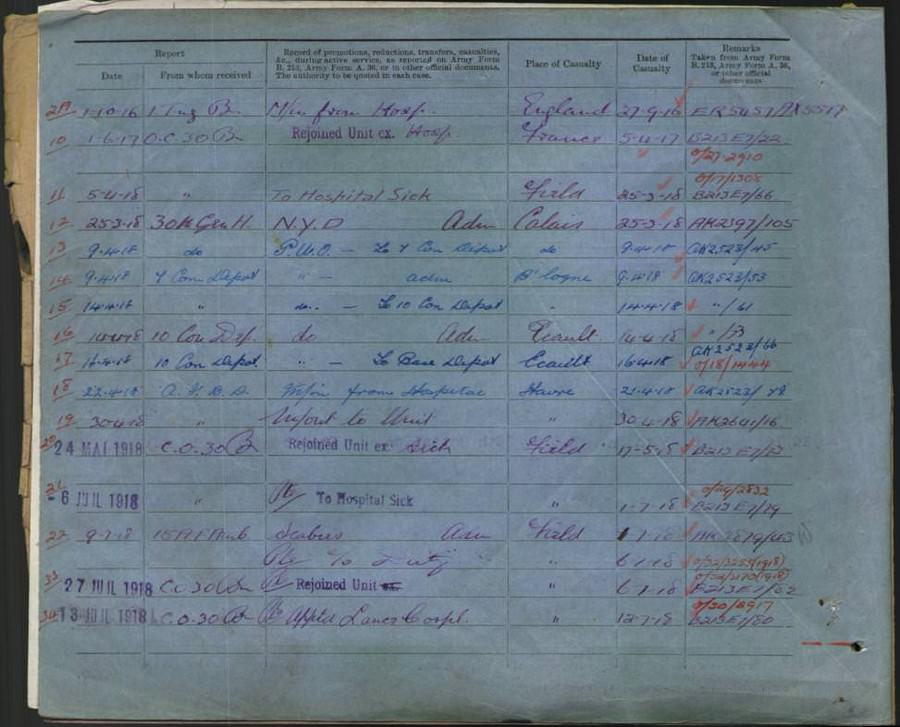 Report
Record of promotions, reductions, transfers, casualties,
&c., during active service, as reported on Army Form
B. 213, Army Form A. 36, or in other official documents.
The authority to be quoted in each case.
Place of Casualty
Date of
Casualty
Remarks
Taken from Army Form
B. 213, Army Form A. 36,
or other official
documents
Date From whom received
1-10-16 1 Tng Bn M/in from Hosp. England 27-9-16 ER5457/
10 1-6-17 O.C. 30 Bn Rejoined Unit ex. Hosp France 5-4-17 B213 E7/22
0/27-2910
0/17/1308
11 5-4-18 " To Hospital Sick Field 25-3-18 B213E7/66
12 25-3-18 30th Gen H. N.Y.D Adm Calais 25-3-18 AK2397/105
13 9-4-18 do P.U.O. — To 7 Con Depot do 9-4-18 AK2523/45
14 9-4-18 7 Con Depot " — adm B'logne 9-4-18 AK2523/53
15 14-4-18 " do.. — To 10 Con Depot 14-4-18 " / 61
16 14-4-18 10 Con Dep. do Adm Ecault 14-4-18 " /53
AK2523/66
17 16-4-18 10 Con Depot. " — To Base Depot Ecault 16-4-18 0/18/1444
18 22-4-18 A.I.B.D. M/in from Hospital Havre 21-4-18 AK2523/
19 30-4-18 " M/out to Unit " 30-4-18 AK2641/16
20 24 MAI 1918 C.O. 30 Bn Rejoined Unit ex Sick Field 17-5-18 B213 E7/
21 0/29/2832
-6 JUIL 1918 " Pte To Hospital Sick " 1-7-18 B213 E7/79
22 9-7-18 15 A F Amb. Scabies Adm Field 1-7-18
Pte To Duty " 6-7-18 0/32/3259(1918)
0/32/3170(1918)
33 27 JUIL 1918 C.O. 30 Bn Rejoined Unit ex. " 6-7-18 B213E7/82
0/30/2917
34 13 JUIL 1918 C.O. 30 Bn Pte Appted Lance Corpl. " 12-7-18 B213E7/80